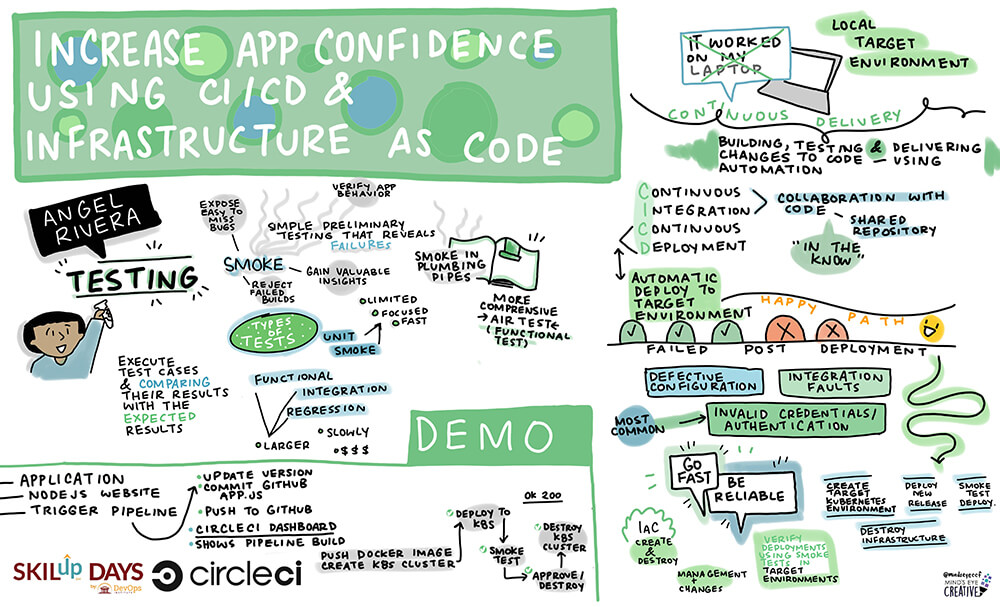 INCREASE APP CONFIDENCE
USING CI/CD &
INFRASTRUCTURE AS CODE
ANGEL
RIVERA
TESTING
EXECUTE
TEST CASES
& COMPARING
THEIR RESULTS
WITH THE
EXPECTED
RESULTS
EXPOSE
EASY TO
MISS
BUGS
VERIFY APP
BEHAVIOR
SIMPLE PRELIMINARY
TESTING THAT REVEALS
FAILURES
SMOKE
GAIN VALUABLE
INSIGHTS
REJECT
FAILED
BUILDS
SMOKE IN
PLUMBING
PIPES
MORE
COMPRENSIVE
AIR TEST
(FUNCTIONAL
TEST)
TYPES
OF
TESTS
UNIT
SMOKE
LIMITED
FOCUSED
FAST
FUNCTIONAL
INTEGRATION
REGRESSION
LARGER
SLOWLY
$$$
DEMO
APPLICATION
NODEJS WEBSITE
TRIGGER PIPELINE
UPDATE VERSION
COMMIT GITHUB
APP.JS
PUSH TO GITHUB
CIRCLECI DASHBOARD
SHOWS PIPELINE BUILD
PUSH DOCKER IMAGE
CREATE K8S CLUSTER
DEPLOY TO
K8S
SMOKE
TEST
APPROVE/
DESTROY
DESTROY
K8S
CLUSTER
OK 200
SKILup DAYS
by DevOps
INSTITUTE
circleci
IT WORKED
ON MY
LAPTOP
LOCAL
TARGET
ENVIRONMENT
CONTINUOUS DELIVERY
BUILDING, TESTING & DELIVERING
CHANGES TO CODE — USING
AUTOMATION
CONTINUOUS
INTEGRATION
CONTINUOUS
DEPLOYMENT
COLLABORATION WITH
CODE
SHARED
REPOSITORY
"IN THE
KNOW"
AUTOMATIC
DEPLOY TO
TARGET
ENVIRONMENT
HAPPY PATH
FAILED POST DEPLOYMENT
DEFECTIVE
CONFIGURATION
INTEGRATION
FAULTS
MOST
COMMON
INVALID CREDENTIALS/
AUTHENTICATION
GO
FAST
BE
RELIABLE
IAC
CREATE &
DESTROY
MANAGEMENT
+
CHANGES
VERIFY
DEPLOYMENTS
USING SMOKE
TESTS IN
TARGET
ENVIRONMENTS
CREATE
TARGET
KUBERNETES
ENVIRONMENT
DEPLOY
NEW
RELEASE
SMOKE
TEST
DEPLOY.
DESTROY
INFRASTRUCTURE
@mindseyeccf
MIND'S EYE
CREATIVE